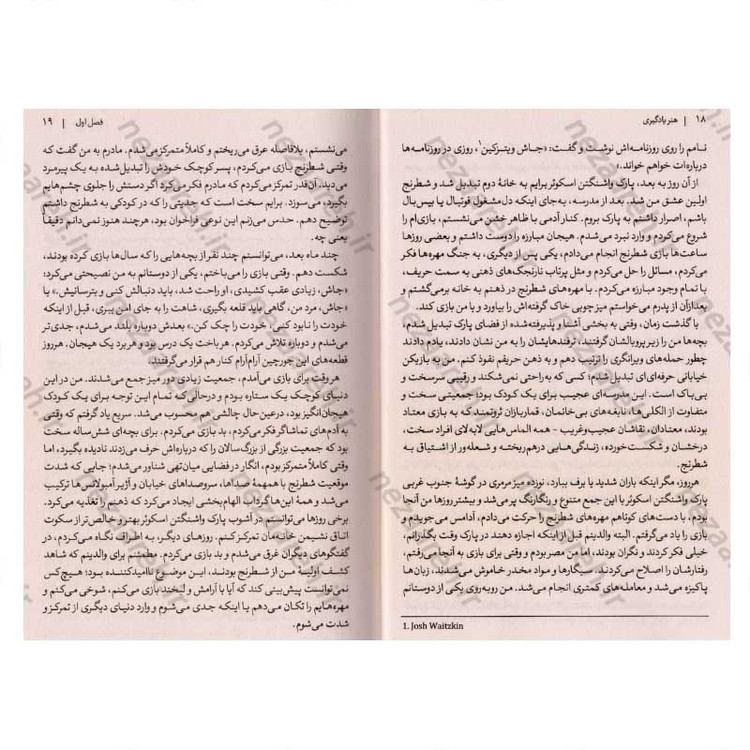 ۱۸ | هنر یادگیری
نامم را روی روزنامه‌اش نوشت و گفت: «جاش ویتزکین¹، روزی در روزنامه‌ها
درباره‌ات خواهم خواند.»
از آن روز به بعد، پارک واشنگتن اسکوئر برایم به خانهٔ دوم تبدیل شد و شطرنج
اولین عشق من شد. بعد از مدرسه، به جای اینکه دل‌مشغول فوتبال یا بیس‌بال
باشم، اصرار داشتم به پارک بروم. کنار آدمی با ظاهر خشن می‌نشستم، بازی‌ام را
شروع می‌کردم و وارد نبرد می‌شدم. هیجان مبارزه را دوست داشتم و بعضی روزها
ساعت‌ها بازی شطرنج انجام می‌دادم، یکی پس از دیگری، به جنگ مهره‌ها فکر
می‌کردم، مسائل را حل می‌کردم و مثل پرتاب نارنجک‌های ذهنی به سمت حریف،
با تمام وجود مبارزه می‌کردم. با مهره‌های شطرنج در ذهنم به خانه برمی‌گشتم و
بعد از آن از پدرم می‌خواستم میز چوبی خاک گرفته‌اش را بیاورد و با من بازی کند.
با گذشت زمان، وقتی به بخشی آشنا و پذیرفته‌شده از فضای پارک تبدیل شدم،
بچه‌ها من را زیر پروبالشان گرفتند، ترفندهایشان را به من نشان دادند، یادم دادند
چطور حمله‌های ویرانگری را ترتیب دهم و به ذهن حریف نفوذ کنم. من به بازیکن
خیابانی حرفه‌ای‌ای تبدیل شدم؛ کسی که به‌راحتی نمی‌شکند و رقیبی سرسخت و
بی‌باک است. این مدرسه‌ای عجیب برای یک کودک بود؛ جمعیتی سخت و
متفاوت از الکلی‌ها، نابغه‌های بی‌خانمان، قماربازان ثروتمند که به بازی معتاد
بودند، معتادان، نقاشان عجیب‌وغریب - همه الماس‌هایی لابه‌لای افراد سخت،
درخشان و شکست‌خورده، زندگی‌هایی درهم‌ریخته و شعله‌ور از اشتیاق به
شطرنج.
هر روز، مگر اینکه باران شدید یا برف ببارد، نوزده میز مرمری در گوشهٔ جنوب غربی
پارک واشنگتن اسکوئر با این جمع متنوع و رنگارنگ پر می‌شد و بیشتر روزها من آنجا
بودم، با دست‌های کوتاهم مهره‌های شطرنج را حرکت می‌دادم، آدامس می‌جویدم و
بازی را یاد می‌گرفتم. البته والدینم قبل از اینکه اجازه دهند در پارک وقت بگذرانم،
خیلی فکر کردند و نگران بودند، اما من مصر بودم و وقتی برای بازی به آنجا می‌رفتم،
رفتارشان را اصلاح می‌کردند. سیگارها و مواد مخدر خاموش می‌شدند، زبان‌ها
پاکیزه می‌شد و معامله‌های کمتری انجام می‌شد. من روبه‌روی یکی از دوستانم
1. Josh Waitzkin
فصل اول | ۱۹
می‌نشستم، بلافاصله عرق می‌ریختم و کاملاً متمرکز می‌شدم. مادرم به من گفت که
وقتی شطرنج بازی می‌کردم، پسر کوچک خودش را تبدیل‌شده به یک پیرمرد
می‌دید. آن‌قدر تمرکز می‌کردم که مادرم فکر می‌کرد اگر دستش را جلوی چشم‌هایم
بگیرد، می‌سوزد. برایم سخت است که جدیتی را که در کودکی به شطرنج داشتم
توضیح دهم. حدس می‌زنم این نوعی فراخوان بود، هرچند هنوز نمی‌دانم دقیقاً
یعنی چه.
چند ماه بعد، می‌توانستم چند نفر از بچه‌هایی را که سال‌ها بازی کرده بودند،
شکست دهم. وقتی بازی را می‌باختم، یکی از دوستانم به من نصیحتی می‌کرد:
«جاش، زیادی عقب کشیدی، او راحت شد، باید دنبالش کنی و بترسانیش.» یا
«جاش، مرد من، گاهی باید قلعه بگیری، شاهت را به جای امن ببری، قبل از اینکه
خودت را نابود کنی، خودت را چک کن.» بعدش دوباره بلند می‌شدم، جدی‌تر
می‌شدم و دوباره تلاش می‌کردم. هر باخت یک درس بود و هر برد یک هیجان. هر روز
قطعه‌های این جورچین آرام‌آرام کنار هم قرار می‌گرفتند.
هر وقت برای بازی می‌آمدم، جمعیت زیادی دور میز جمع می‌شدند. من در این
دنیای کوچک یک ستاره بودم و درحالی‌که تمام این توجه برای یک کودک
هیجان‌انگیز بود، درعین‌حال چالشی هم محسوب می‌شد. سریع یاد گرفتم که وقتی
به آدم‌های تماشاگر فکر می‌کردم، بد بازی می‌کردم. برای بچه‌ای شش‌ساله سخت
بود که جمعیت بزرگی از بزرگ‌سالان را که درباره‌اش حرف می‌زدند نادیده بگیرد، اما
وقتی کاملاً متمرکز بودم، انگار در فضایی میان‌تهی شناور می‌شدم؛ جایی که شدت
موقعیت شطرنج با همهمهٔ صداها، سروصداهای خیابان و آژیر آمبولانس‌ها ترکیب
می‌شد و همهٔ این‌ها گرداب الهام‌بخشی ایجاد می‌کرد که ذهنم را تغذیه می‌کرد.
برخی روزها می‌توانستم در آشوب پارک واشنگتن اسکوئر بهتر و خالص‌تر از سکوت
اتاق نشیمن خانه‌مان تمرکز کنم. روزهای دیگر، به اطراف نگاه می‌کردم، در
گفتگوهای دیگران غرق می‌شدم و بد بازی می‌کردم. مطمئنم برای والدینم که شاهد
کشف اولیهٔ من از شطرنج بودند، این موضوع ناامیدکننده بود؛ هیچ‌کس
نمی‌توانست پیش‌بینی کند که آیا با آرامش و لبخند بازی می‌کنم، شوخی می‌کنم و
مهره‌هایم را تکان می‌دهم یا اینکه جدی می‌شوم و وارد دنیای دیگری از تمرکز و
شدت می‌شوم.